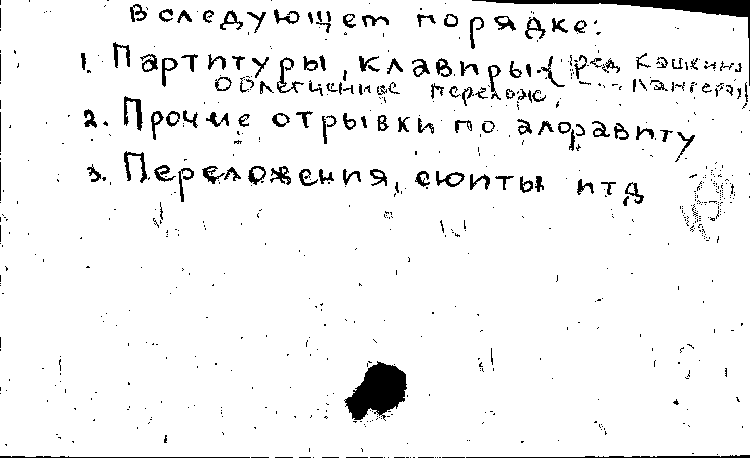 в следующем порядке:
1. Партитуры, клавиры { ред Кашкина
Облегченное перелож, " --- Лангера,
2. Прочие отрывки по алфавиту
3. Переложения, сюиты итд